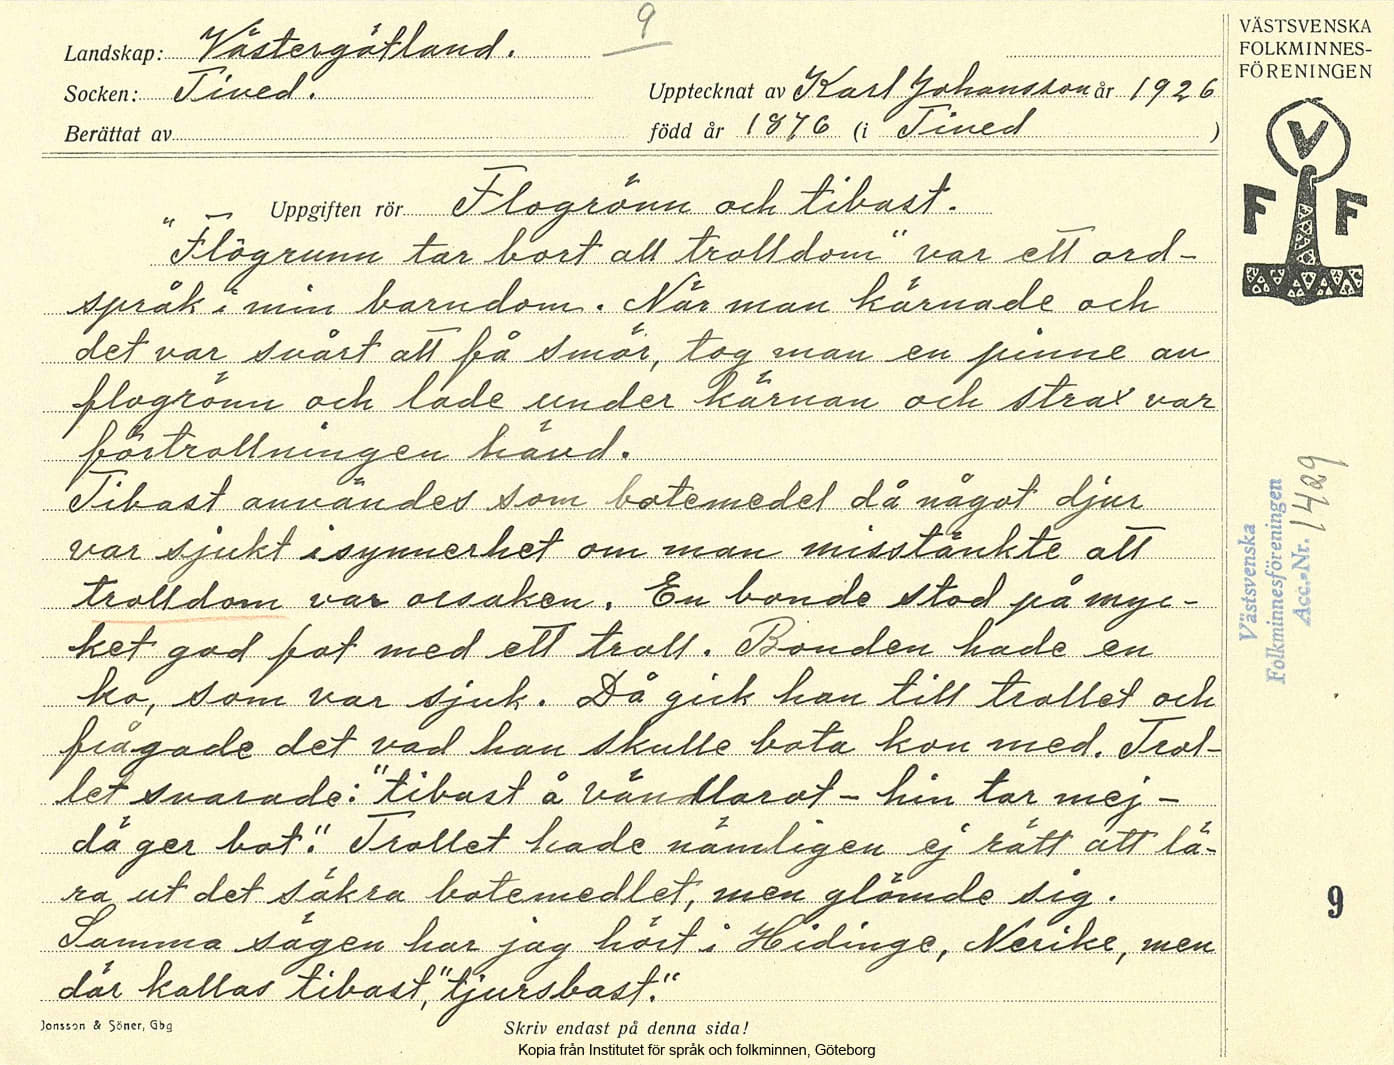 9
Landskap: Västergötland.
Socken: Tived.
Berättat av
Upptecknat av Karl Johansson år 1926
född år 1876 (i Tived )
Uppgiften rör Flogrönn och tibast.
"Flögrunn tar bort all trolldom" var ett ord-
språk i min barndom. När man kärnade och
det var svårt att få smör, tog man en pinne av
flogrönn och lade under kärnan och strax var
förtrollningen hävd.
Tibast användes som botemedel då något djur
var sjukt isynnerhet om man misstänkte att
trolldom var orsaken. En bonde stod på myc-
ket god fot med ett troll. Bonden hade en
ko, som var sjuk. Då gick han till trollet och
frågade det vad han skulle bota kon med. Trol-
let svarade: "tibast å vändlarot – hin tar mej –
dä ger bot". Trollet hade nämligen ej rätt att lä-
ra ut det säkra botemedlet, men glömde sig.
Samma sägen har jag hört i Hidinge, Nerike, men
där kallas tibast, "tjursbast".
Jonsson & Söner, Gbg
Skriv endast på denna sida!
Kopia från Institutet för språk och folkminnen, Göteborg
VÄSTSVENSKA
FOLKMINNES-
FÖRENINGEN
V
F F
Västsvenska
Folkminnesföreningen
Acc.-Nr. 1429
9